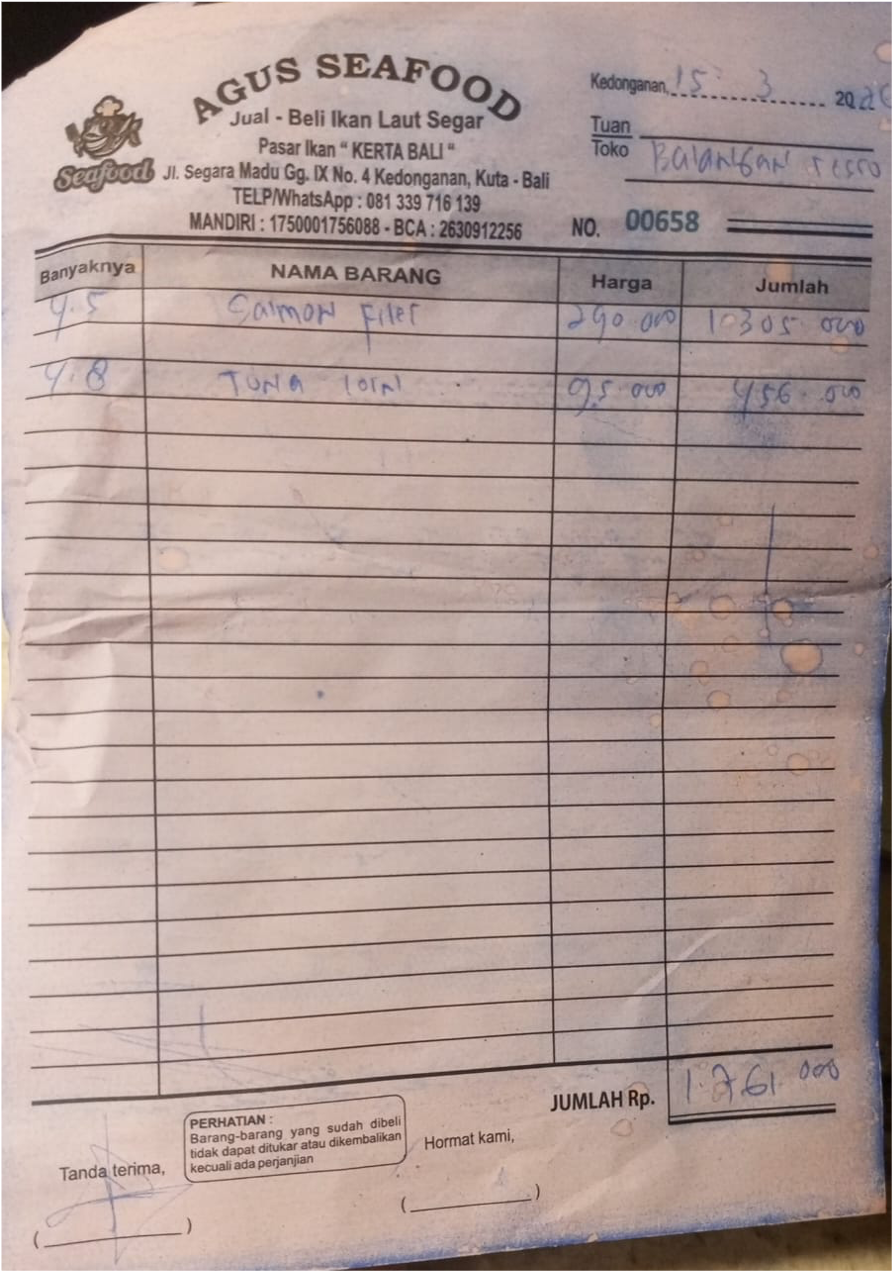 AGUS SEAFOOD
Jual - Beli Ikan Laut Segar
Pasar Ikan " KERTA BALI "
Seafood
Jl. Segara Madu Gg. IX No. 4 Kedonganan, Kuta - Bali
TELP/WhatsApp : 081 339 716 139
MANDIRI : 1750001756088 - BCA : 2630912256
Kedonganan, 15 3 20
Tuan
Toko Balangan
NO. 00658
Banyaknya NAMA BARANG Harga Jumlah
4.5 Salmon Filet 290.000 1.305.000
4.8 Tuna loin 95.000 456.000
JUMLAH Rp. 1.761.000
Tanda terima,
PERHATIAN :
Barang-barang yang sudah dibeli
tidak dapat ditukar atau dikembalikan
kecuali ada perjanjian
Hormat kami,
(                    )
(                    )